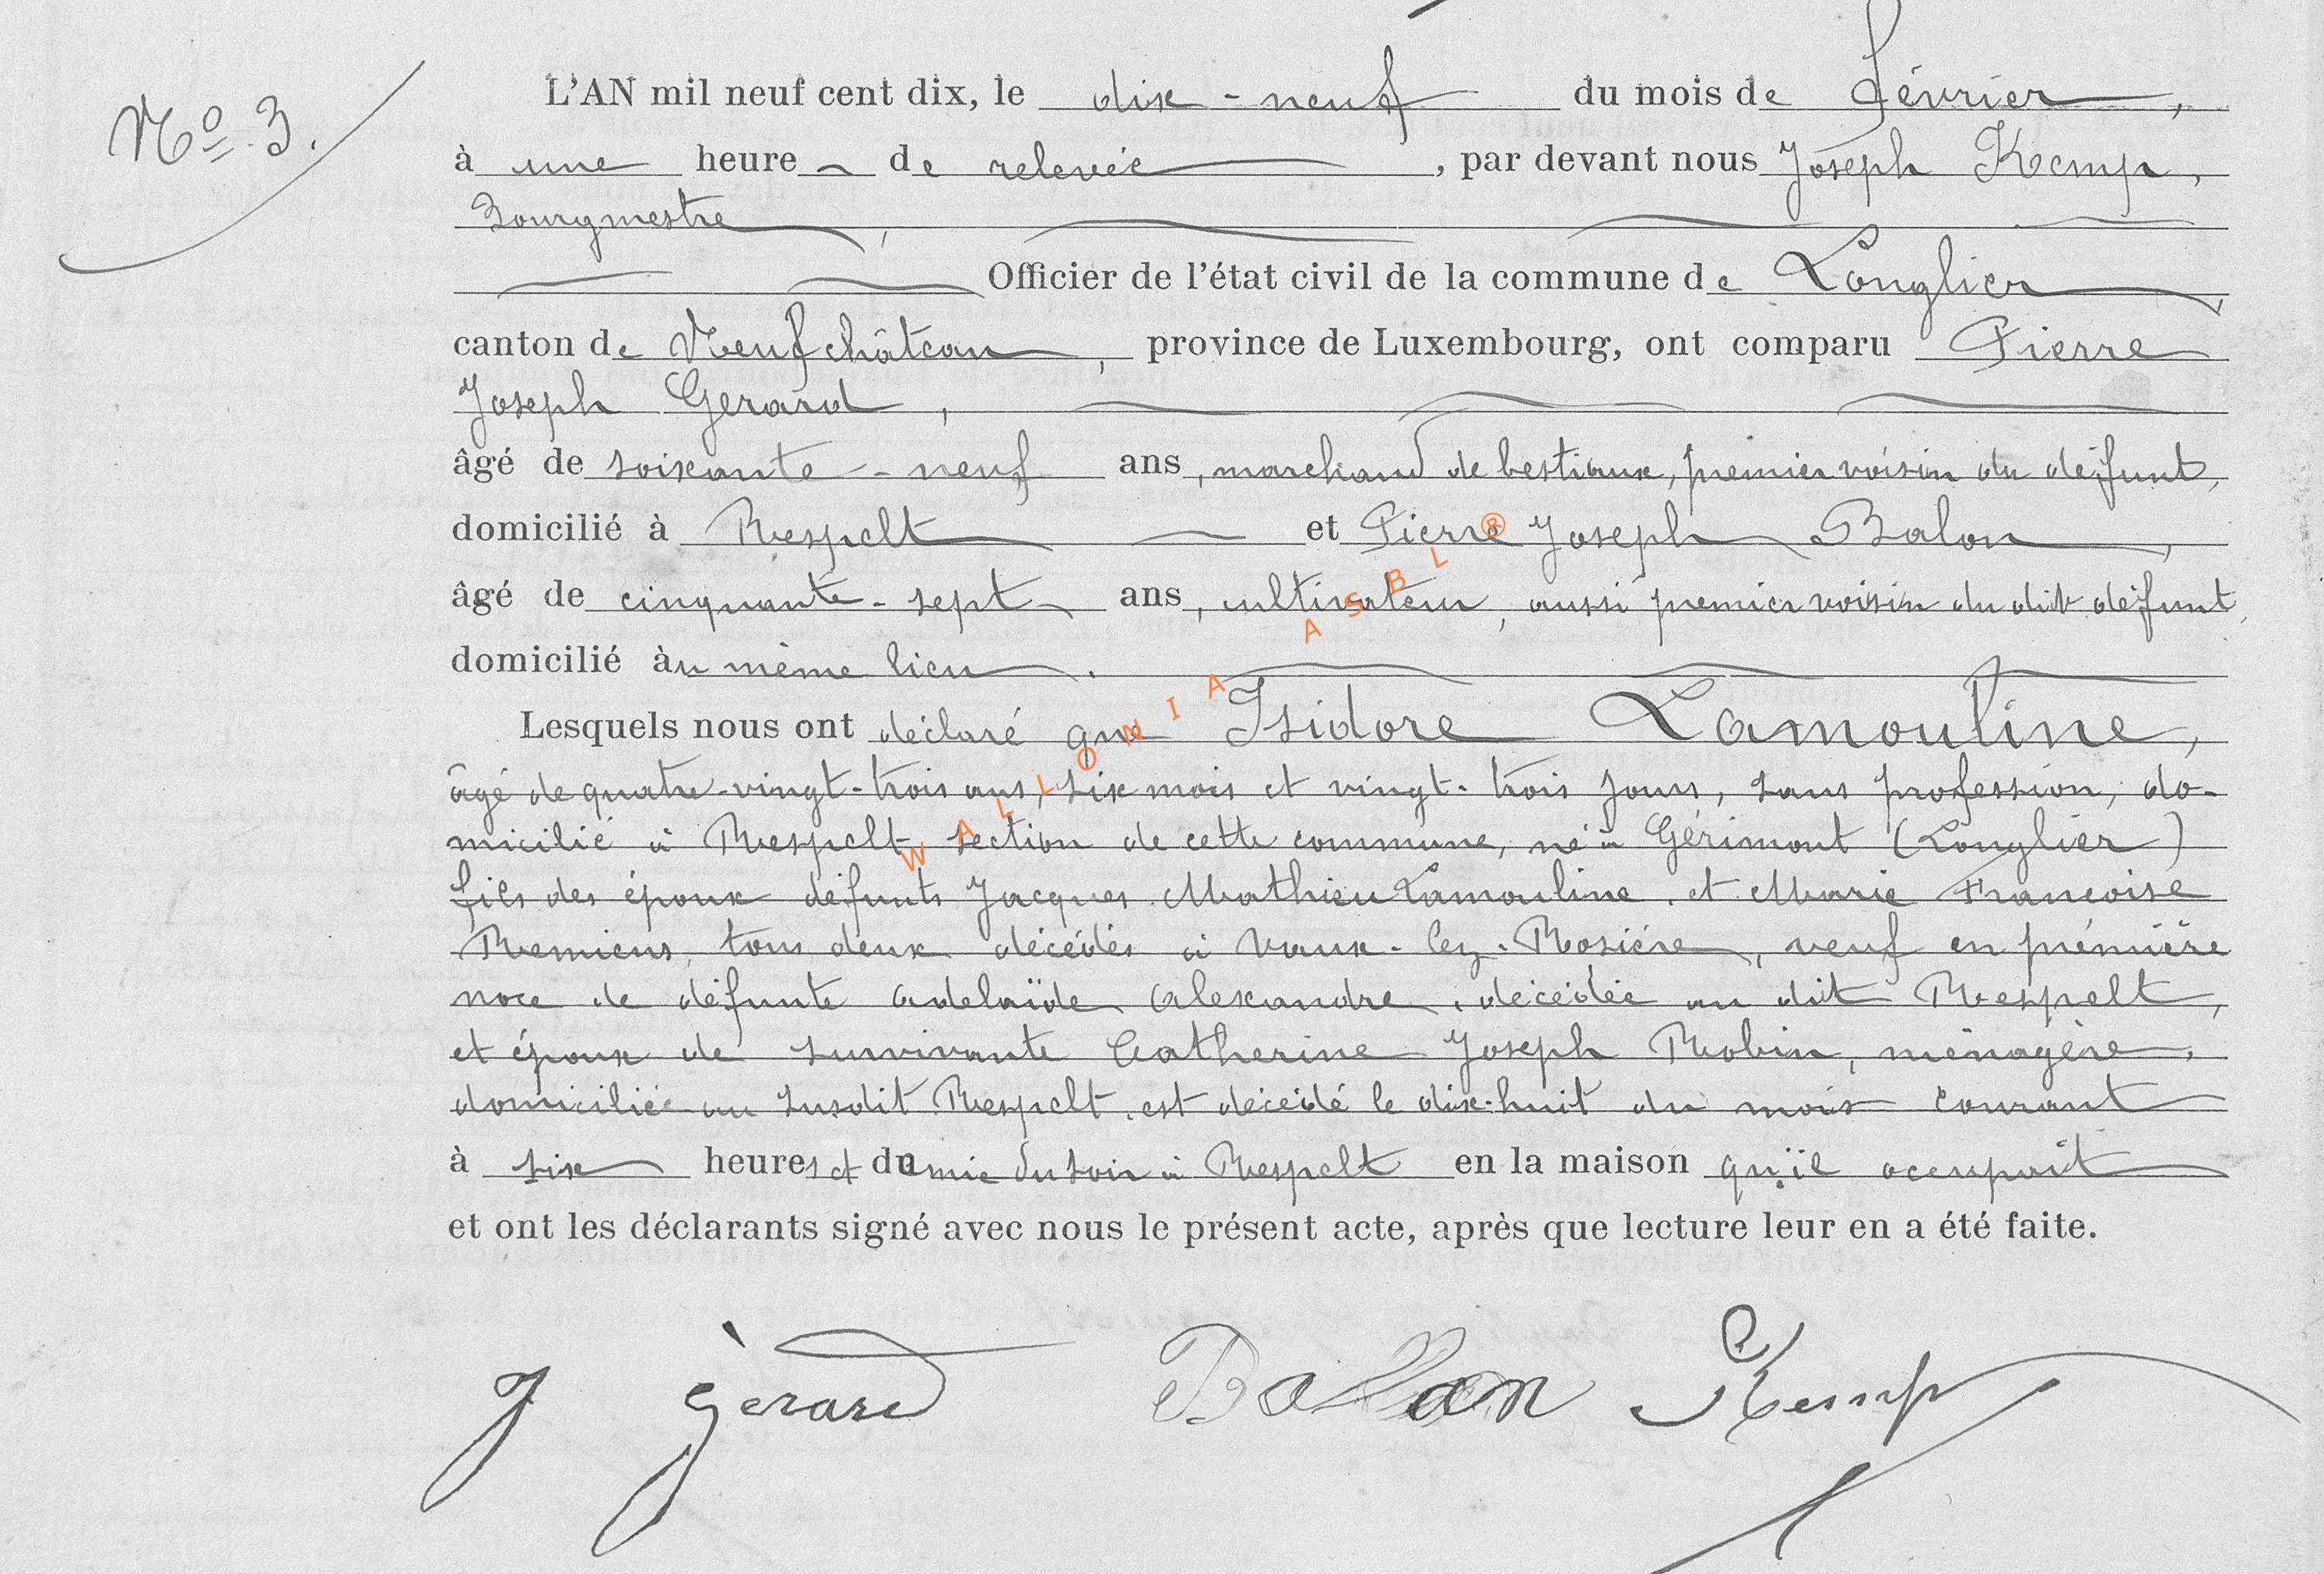 Nº 3.
L'AN mil neuf cent dix, le dix-neuf du mois de février,
à une heure de relevée, par devant nous Joseph Kemp,
Bourgmestre,
Officier de l'état civil de la commune de Longlier,
canton de Neufchâteau, province de Luxembourg, ont comparu Pierre
Joseph Gerard,
âgé de soixante-neuf ans, marchand de bestiaux, premier voisin du défunt,
domicilié à Respelt et Pierre Joseph Balon,
âgé de cinquante-sept ans, cultivateur, aussi premier voisin du dit défunt,
domicilié àu même lieu.
Lesquels nous ont déclaré que Isidore Lamouline,
âgé de quatre-vingt-trois ans, six mois et vingt-trois jours, sans profession, do-
micilié à Respelt section de cette commune, né à Gérimont (Longlier)
fils des époux défunts Jacques Mathieu Lamouline et Marie Françoise
Remiens, tous deux décédés à Vaux-lez-Rosière, veuf en prémière
noce de défunte Adelaïde Alexandre, décédée au dit Respelt,
et époux de survivante Catherine Joseph Robin, ménagère,
domiciliée au susdit Respelt, est décédé le dix-huit du mois courant
à six heures et demie du soir à Respelt en la maison qu'il occupait
et ont les déclarants signé avec nous le présent acte, après que lecture leur en a été faite.
J Gèrard Balon Kemp
WALLONIA ASBL ®